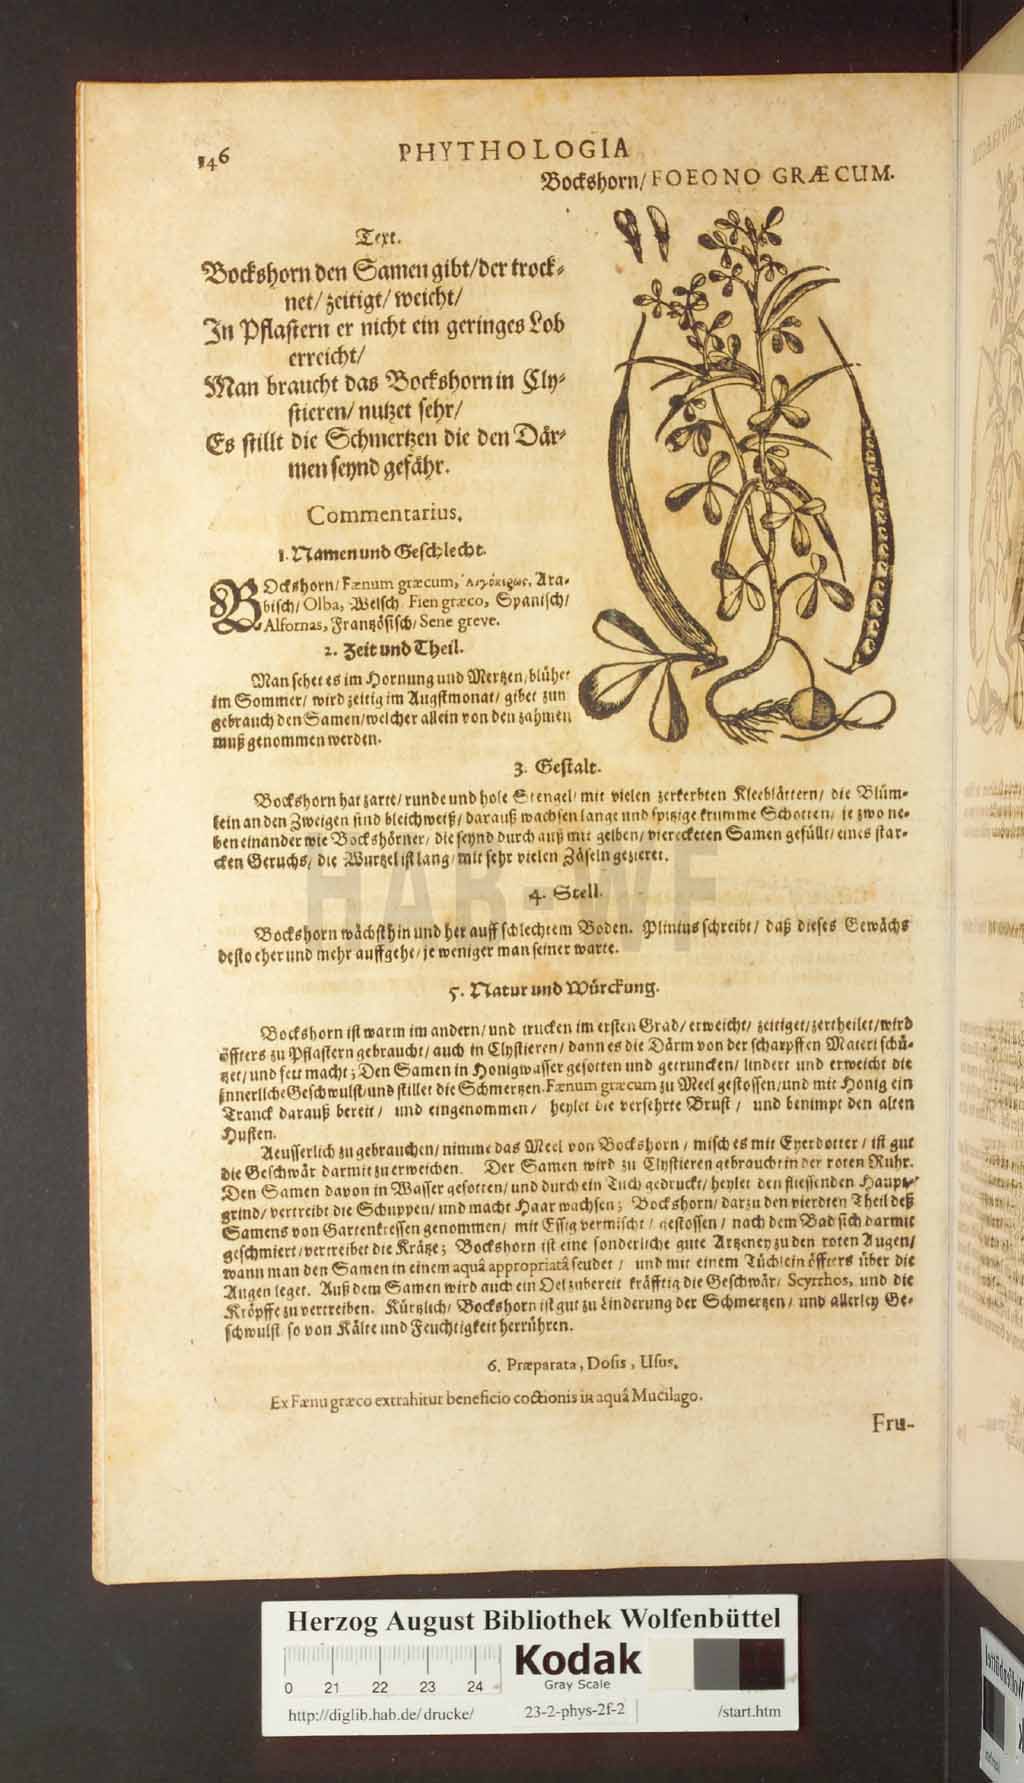 146
PHYTHOLOGIA
Bockshorn/ FOEONO GRÆCUM.
Text.
Bockshorn den Samen gibt/ der trock-
net/ zeitigt/ weicht/
In Pflastern er nicht ein geringes Lob
erreicht/
Man braucht das Bockshorn in Cly-
stieren/ nutzet sehr/
Es stillt die Schmertzen die den Där-
men seynd gefähr.
Commentarius.
1. Namen und Geschlecht.
BOckshorn/ Fænum græcum, Ara-
bisch/ Olba, Welsch Fien græco, Spanisch/
Alfornas, Frantzösisch/ Sene greve.
2. Zeit und Theil.
Man sehet es im Hornung und Mertzen/ blühet
im Sommer/ wird zeitig im Augstmonat/ gibet zun
gebrauch den Samen/ welcher allein von den zahmen
muß genommen werden.
3. Gestalt.
Bockshorn hat zarte/ runde und hole Stengel/ mit vielen zerkerbten Kleeblättern/ die Blüm-
lein an den Zweigen sind bleichweiß/ darauß wachsen lange und spitzige krumme Schotten/ je zwo ne-
ben einander wie Bockshörner/ die seynd durch auß mit gelben/ viereckten Samen gefüllt/ eines star-
cken Geruchs/ die Wurtzel ist lang/ mit sehr vielen Zäseln gezieret.
4. Stell.
Bockshorn wächst hin und her auff schlechtem Boden. Plinius schreibt/ daß dieses Gewächs
desto eher und mehr auffgehe/ je weniger man seiner warte.
5. Natur und Würckung.
Bockshorn ist warm im andern/ und trucken im ersten Grad/ erweicht/ zeitiget/ zertheilet/ wird
öffters zu Pflastern gebraucht/ auch in Clystieren/ dann es die Därm von der scharpffen Materi schü-
tzet/ und fett macht; Den Samen in Honigwasser gesotten und getruncken/ lindert und erweicht die
innerliche Geschwulst/ und stillet die Schmertzen. Fænum græcum zu Meel gestossen/ und mit Honig ein
Tranck darauß bereit/ und eingenommen/ heylet die versehrte Brust/ und benimpt den alten
Husten.
Aeusserlich zu gebrauchen/ nimme das Meel von Bockshorn/ misch es mit Eyerdotter/ ist gut
die Geschwär darmit zu erweichen. Der Samen wird zu Clystieren gebraucht in der roten Ruhr.
Den Samen davon in Wasser gesotten/ und durch ein Tuch gedruckt/ heylet den fliessenden Haupt-
grind/ vertreibt die Schuppen/ und macht Haar wachsen; Bockshorn/ darzu den vierdten Theil deß
Samens von Gartenkressen genommen/ mit Essig vermischt/ gestossen/ nach dem Bad sich darmit
geschmiert/ vertreibet die Krätze; Bockshorn ist eine sonderliche gute Artzeney zu den roten Augen/
wann man den Samen in einem aquâ appropriatâ seudet/ und mit einem Tüchlein öffters über die
Augen leget. Auß dem Samen wird auch ein Oel zubereit kräfftig die Geschwär/ Scyrrhos, und die
Kröpffe zu vertreiben. Kürtzlich/ Bockshorn ist gut zu Linderung der Schmertzen/ und allerley Ge-
schwulst so von Kälte und Feuchtigkeit herrühren.
6. Præparata, Dosis, Usus.
Ex Fænu græco extrahitur beneficio coctionis in aquâ Mucilago.
Fru-
HAB-WF
Herzog August Bibliothek Wolfenbüttel
Kodak
Gray Scale
0 21 22 23 24
http://diglib.hab.de/drucke/ 23-2-phys-2f-2 /start.htm